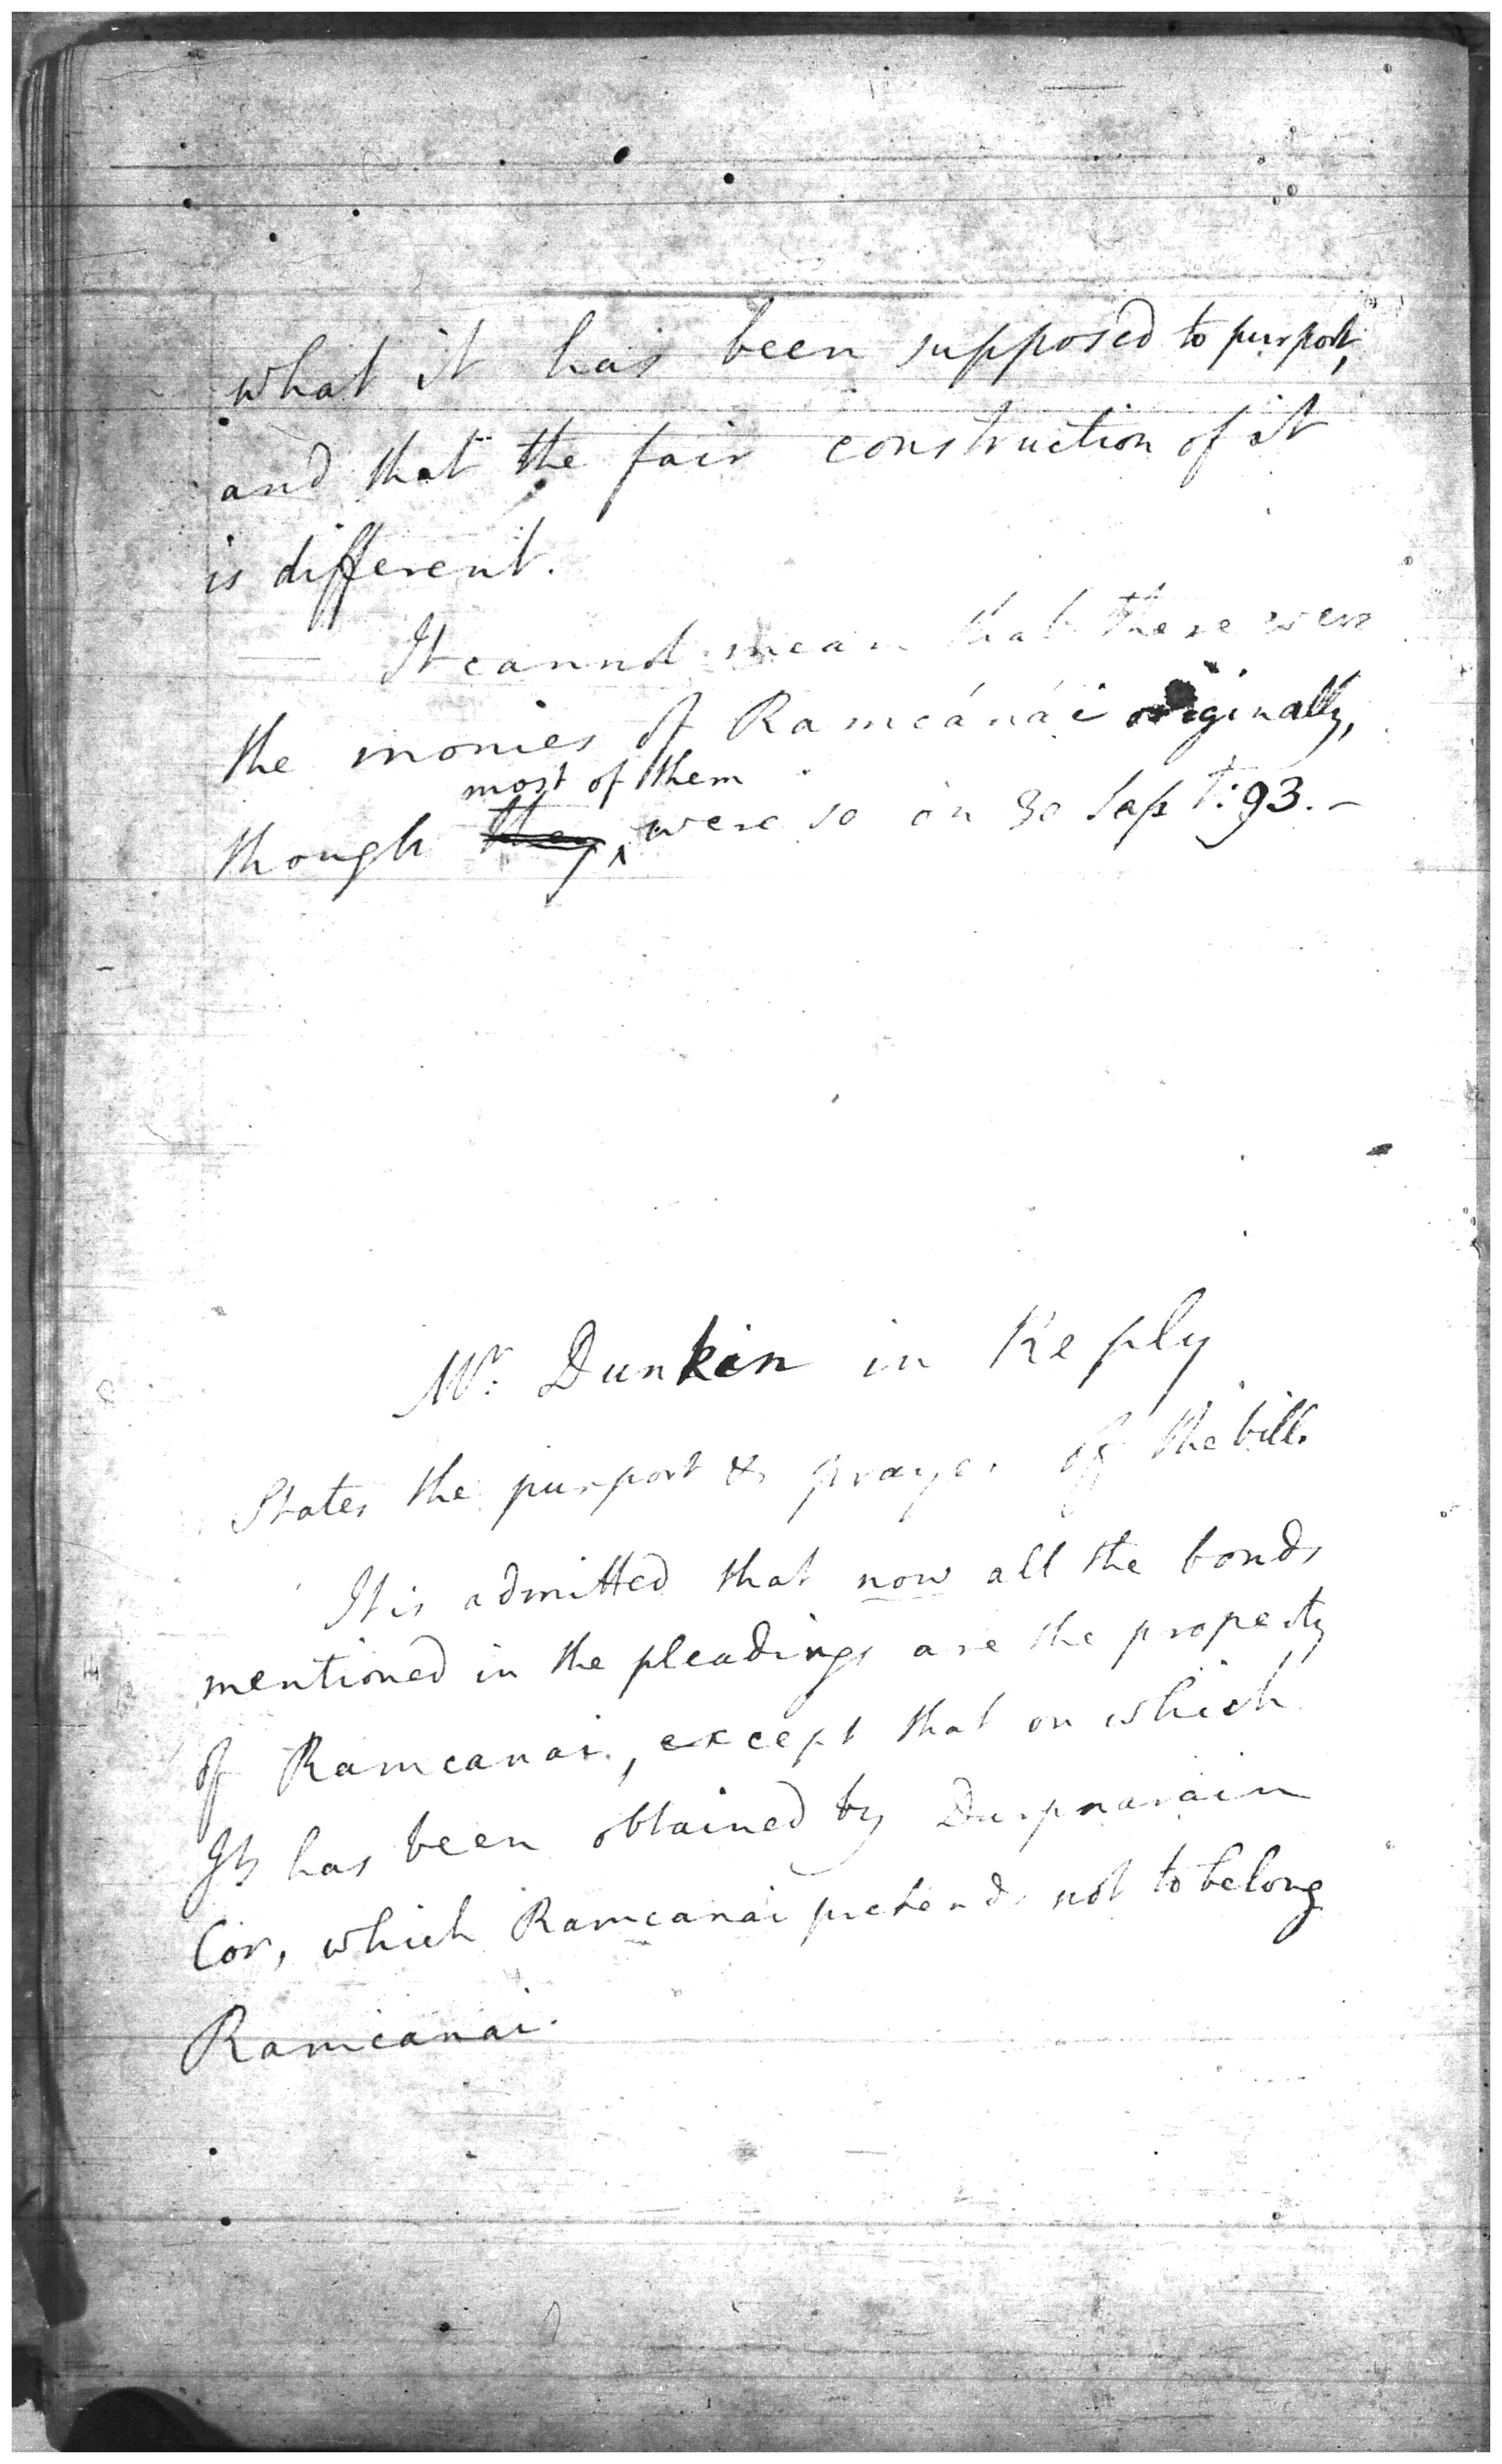 what it has been supposed to purport,
and that the fair construction of it
is different.
— It cannot mean that these were
the monies of Ramcánái originally,
most of them
though they were so on 30 Sept: 93. –
Mr: Dunkin in Reply
States the purport & prayer of the bill.
It is admitted that now all the bonds
mentioned in the pleadings are the property
of Ramcanai, except that on which
Jt has been obtained by Durpnarain
Cor, which Ramcanai pretends not to belong
Ramcanai.